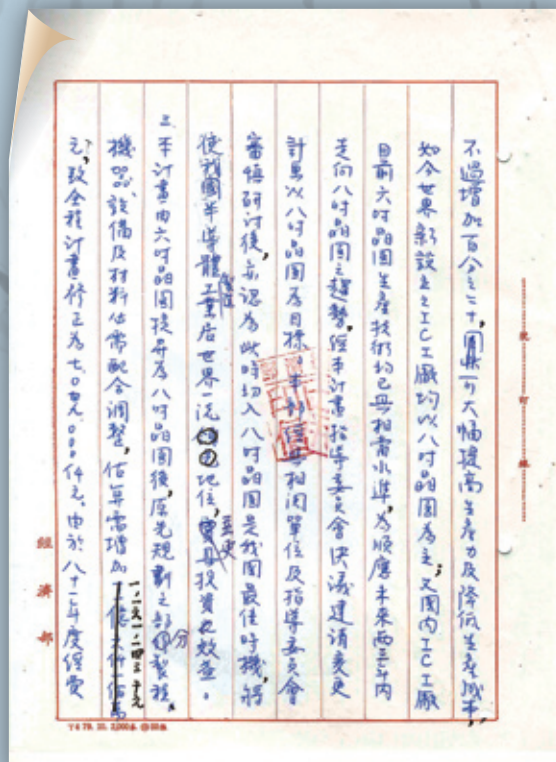 不過增加百分之二十,因此可大幅提高生產力及降低生產成本,
如今世界新設立之IC工廠均以八吋晶圓為主,又國內IC工廠
目前六吋晶圓生產技術均已具相當水準,為順應未來兩三年內
走向八吋晶圓之趨勢,經本計畫指導委員會決議建請變更
計畫以八吋晶圓為目標,本部 與相關單位及指導委員會
審慎研討後,亦認為此時切入八吋晶圓是我國最佳時機,將
使我國半導體工業居世界一流 地位, 更具投資 效益。
三、本計畫由六吋晶圓提昇為八吋晶圓後,原先規劃之部分製程、
機器設備及材料估需配合調整,估算需增加 千元
元,致全程計畫修正為七、 000仟元。由於八十一年度經費
裝 訂 線
經濟部